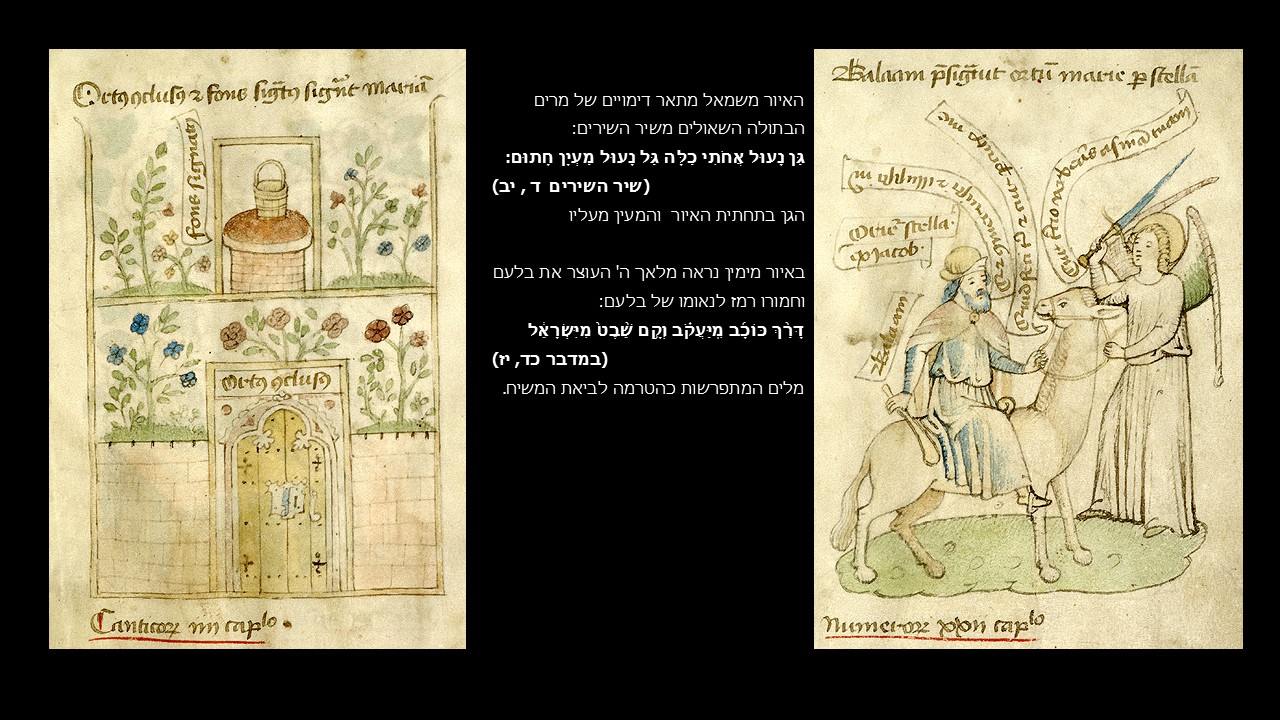 Ortꝯ ɔclusꝯ ⁊ fons sig̅tꝯ sigñt mariā
fons signatꝯ
Ortꝯ ɔclusꝯ
Canticoꝝ iiii cap̅lo
האיור משמאל מתאר דימויים של מרים
הבתולה השאולים משיר השירים:
גַּן נָעוּל אֲחֹתִי כַלָּה גַּל נָעוּל מַעְיָן חָתוּם:
(שיר השירים ד, יב)
הגן בתחתית האיור והמעין מעליו
באיור מימין נראה מלאך ה' העוצר את בלעם
וחמורו רמז לנאומו של בלעם:
דָּרַ֨ךְ כּוֹכָ֜ב מִֽיַּעֲקֹ֗ב וְקָ֥ם שֵׁ֙בֶט֙ מִיִּשְׂרָאֵ֔ל
(במדבר כד, יז)
מלים המתפרשות כהטרמה לביאת המשיח.
Balaam p̅sig̅ut ortū marie p̱ stellā
Orie͞ stella
ex Jacob
Balaam
Numeroꝝ xxii cap̅lo